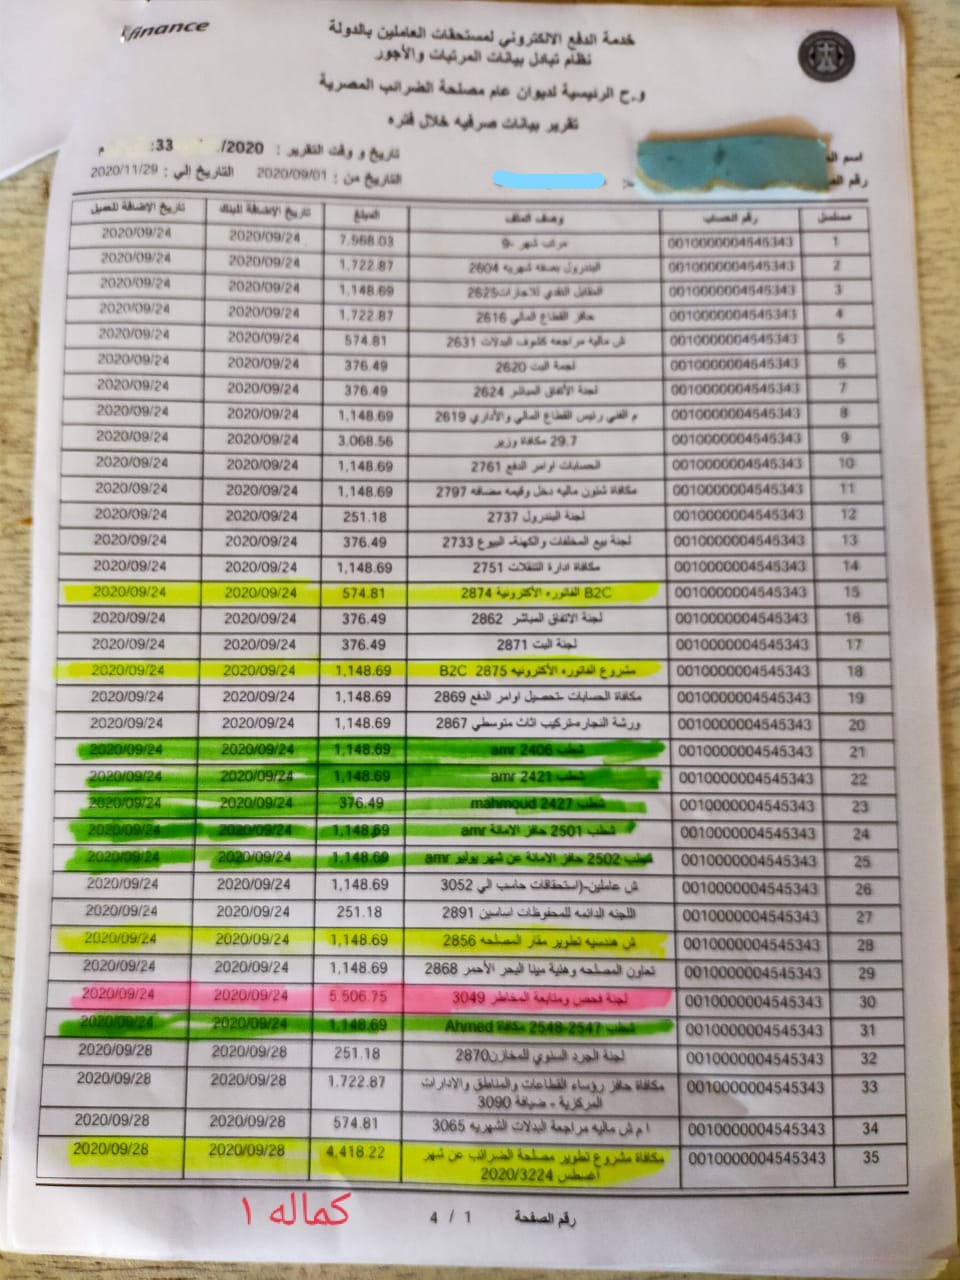 finance
خدمة الدفع الالكتروني لمستحقات العاملين بالدولة
نظام تبادل بيانات المرتبات والأجور
و.ح الرئيسية لديوان عام مصلحة الضرائب المصرية
تقرير بيانات صرفيه خلال فتره
تاريخ و وقت التقرير : /2020 33: م
اسم
رقم
التاريخ من : 2020/09/01 التاريخ إلي : 2020/11/29
مسلسل رقم الحساب وصف الملف المبلغ تاريخ الإضافة للبنك تاريخ الإضافة للعميل
1 0010000004545343 مرتب شهر -9 7,568.03 2020/09/24 2020/09/24
2 0010000004545343 البندرول بصفه شهريه 2604 1,722.87 2020/09/24 2020/09/24
3 0010000004545343 المقابل النقدي للاجازات2625 1,148.69 2020/09/24 2020/09/24
4 0010000004545343 حافز القطاع المالي 2616 1,722.87 2020/09/24 2020/09/24
5 0010000004545343 ش ماليه مراجعه كشوف البدلات 2631 574.81 2020/09/24 2020/09/24
6 0010000004545343 لجنة البت 2620 376.49 2020/09/24 2020/09/24
7 0010000004545343 لجنة الأتفاق المباشر 2624 376.49 2020/09/24 2020/09/24
8 0010000004545343 م الفني رئيس القطاع المالي والأداري 2619 1,148.69 2020/09/24 2020/09/24
9 0010000004545343 29.7 مكافاة وزير 3,068.56 2020/09/24 2020/09/24
10 0010000004545343 الحسابات اوامر الدفع 2761 1,148.69 2020/09/24 2020/09/24
11 0010000004545343 مكافاة شئون ماليه دخل وقيمه مضافه 2797 1,148.69 2020/09/24 2020/09/24
12 0010000004545343 لجنة البندرول 2737 251.18 2020/09/24 2020/09/24
13 0010000004545343 لجنة بيع المخلفات والكهنة- البيوع 2733 376.49 2020/09/24 2020/09/24
14 0010000004545343 مكافاة ادارة التنقلات 2751 1,148.69 2020/09/24 2020/09/24
15 0010000004545343 B2C الفاتوره الأكترونية 2874 574.81 2020/09/24 2020/09/24
16 0010000004545343 لجنة الاتفاق المباشر 2862 376.49 2020/09/24 2020/09/24
17 0010000004545343 لجنة البت 2871 376.49 2020/09/24 2020/09/24
18 0010000004545343 مشروع الفاتوره الأكترونيه 2875 B2C 1,148.69 2020/09/24 2020/09/24
19 0010000004545343 مكافاة الحسابات -تحصيل اوامر الدفع 2869 1,148.69 2020/09/24 2020/09/24
20 0010000004545343 ورشة النجاره-تركيب اثاث متوسطي 2867 1,148.69 2020/09/24 2020/09/24
21 0010000004545343 شطب 2406 amr 1,148.69 2020/09/24 2020/09/24
22 0010000004545343 شطب 2421 amr 1,148.69 2020/09/24 2020/09/24
23 0010000004545343 شطب 2427 mahmoud 376.49 2020/09/24 2020/09/24
24 0010000004545343 شطب 2501 حافز الامانة amr 1,148.69 2020/09/24 2020/09/24
25 0010000004545343 شطب 2502 حافز الامانة عن شهر يوليو amr 1,148.69 2020/09/24 2020/09/24
26 0010000004545343 ش عاملين-(استحقاقات حاسب الي 3052 1,148.69 2020/09/24 2020/09/24
27 0010000004545343 اللجنه الدائمه للمحفوظات اساسين 2891 251.18 2020/09/24 2020/09/24
28 0010000004545343 ش هندسيه تطوير مقار المصلحه 2856 1,148.69 2020/09/24 2020/09/24
29 0010000004545343 تعاون المصلحه وهئية مينا البحر الأحمر 2868 1,148.69 2020/09/24 2020/09/24
30 0010000004545343 لجنة فحص ومتابعة المخاطر 3049 5,506.75 2020/09/24 2020/09/24
31 0010000004545343 شطب 2547-2548 مكافاة Ahmed 1,148.69 2020/09/24 2020/09/24
32 0010000004545343 لجنة الجرد السنوي للمخازن2870 251.18 2020/09/28 2020/09/28
33 0010000004545343 مكافاة حافز رؤساء القطاعات والمناطق والادارات 1,722.87 2020/09/28 2020/09/28
المركزية - ضيافة 3090
34 0010000004545343 ا م ش ماليه مراجعة البدلات الشهريه 3065 574.81 2020/09/28 2020/09/28
35 0010000004545343 مكافاة مشروع تطوير مصلحة الضرائب عن شهر 4,418.22 2020/09/28 2020/09/28
أغسطس 2020/3224
رقم الصفحة 1 / 4
كماله ١